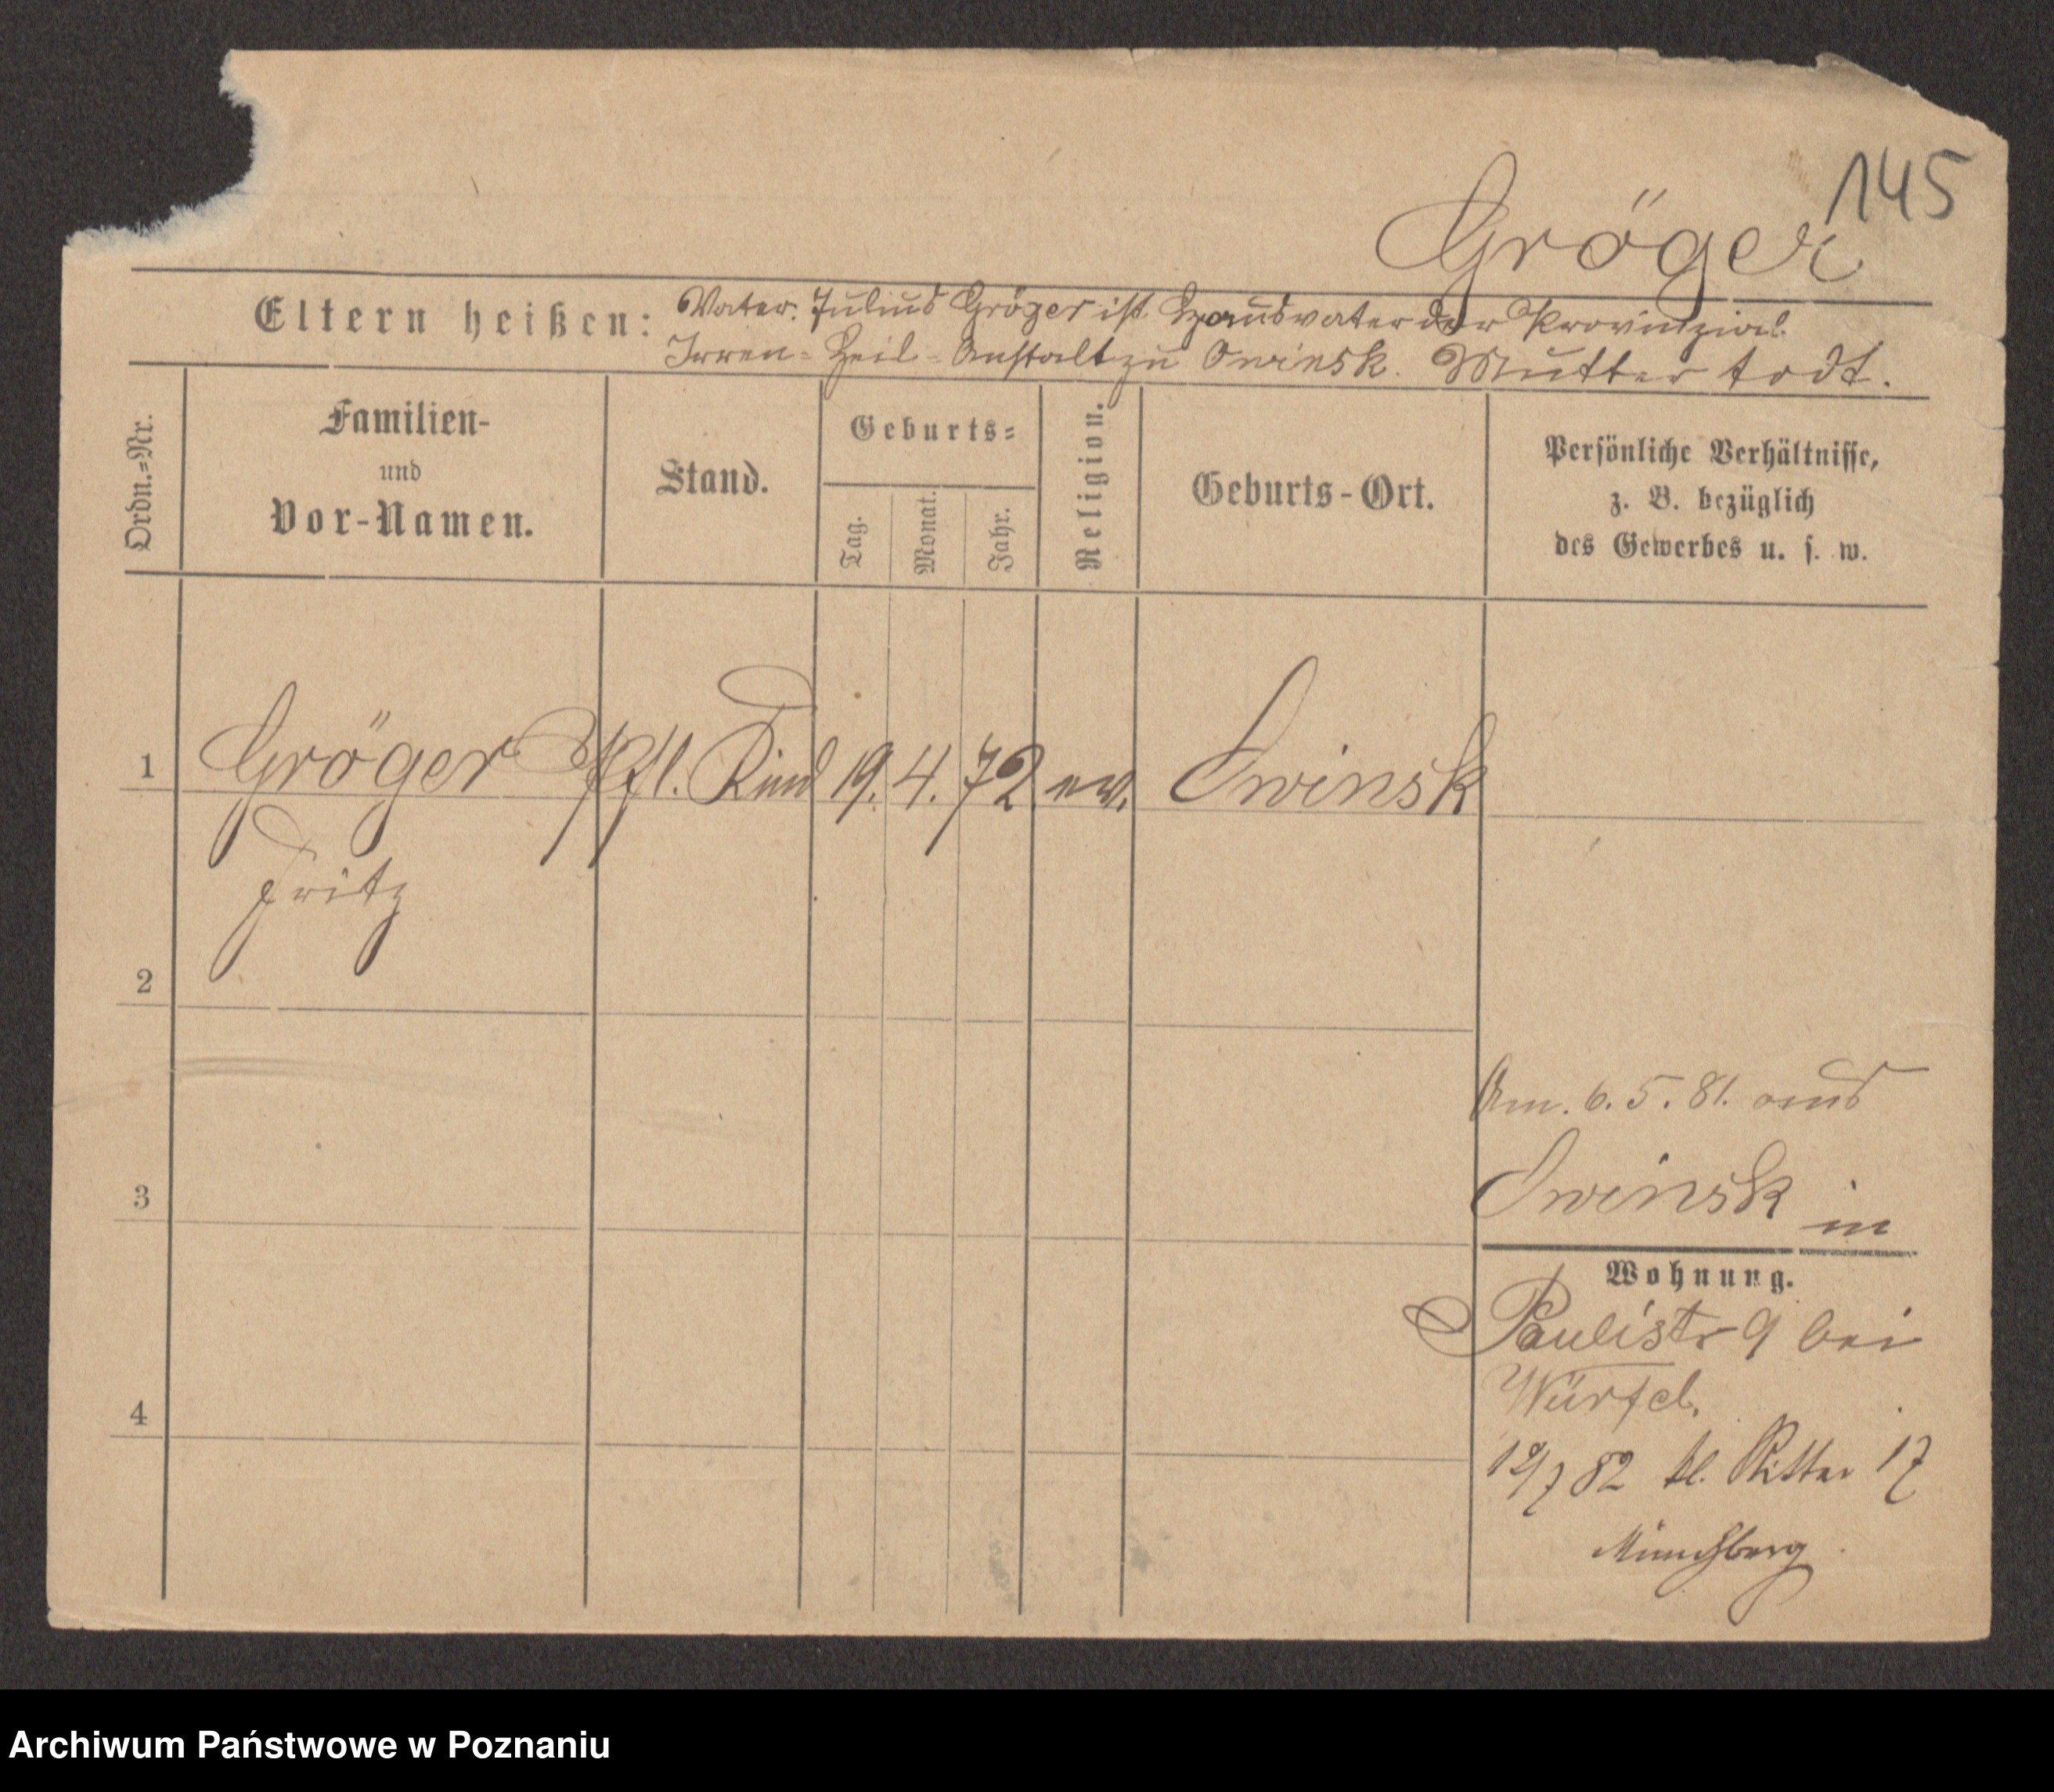 145
Gröger
Eltern heißen: Vater: Julius Gröger ist Hausvater der Provinzial
Irren-Heil-Anstalt zu Owinsk. Mutter todt.
Ordn.-Nr.
Familien-
und
Vor-Namen.
Stand.
Geburts-
Tag.
Monat.
Jahr.
Religion.
Geburts-Ort.
Persönliche Verhältnisse,
z. B. bezüglich
des Gewerbes u. s. w.
1 Gröger Pfl. Kind 19. 4. 72 ev. Owinsk
Fritz
2
Am. 6. 5. 81. aus
3
Owinsk in
Wohnung.
Paulistr 9 bei
Würfel.
4
82 kl. Ritter 17
Münchberg
Archiwum Państwowe w Poznaniu